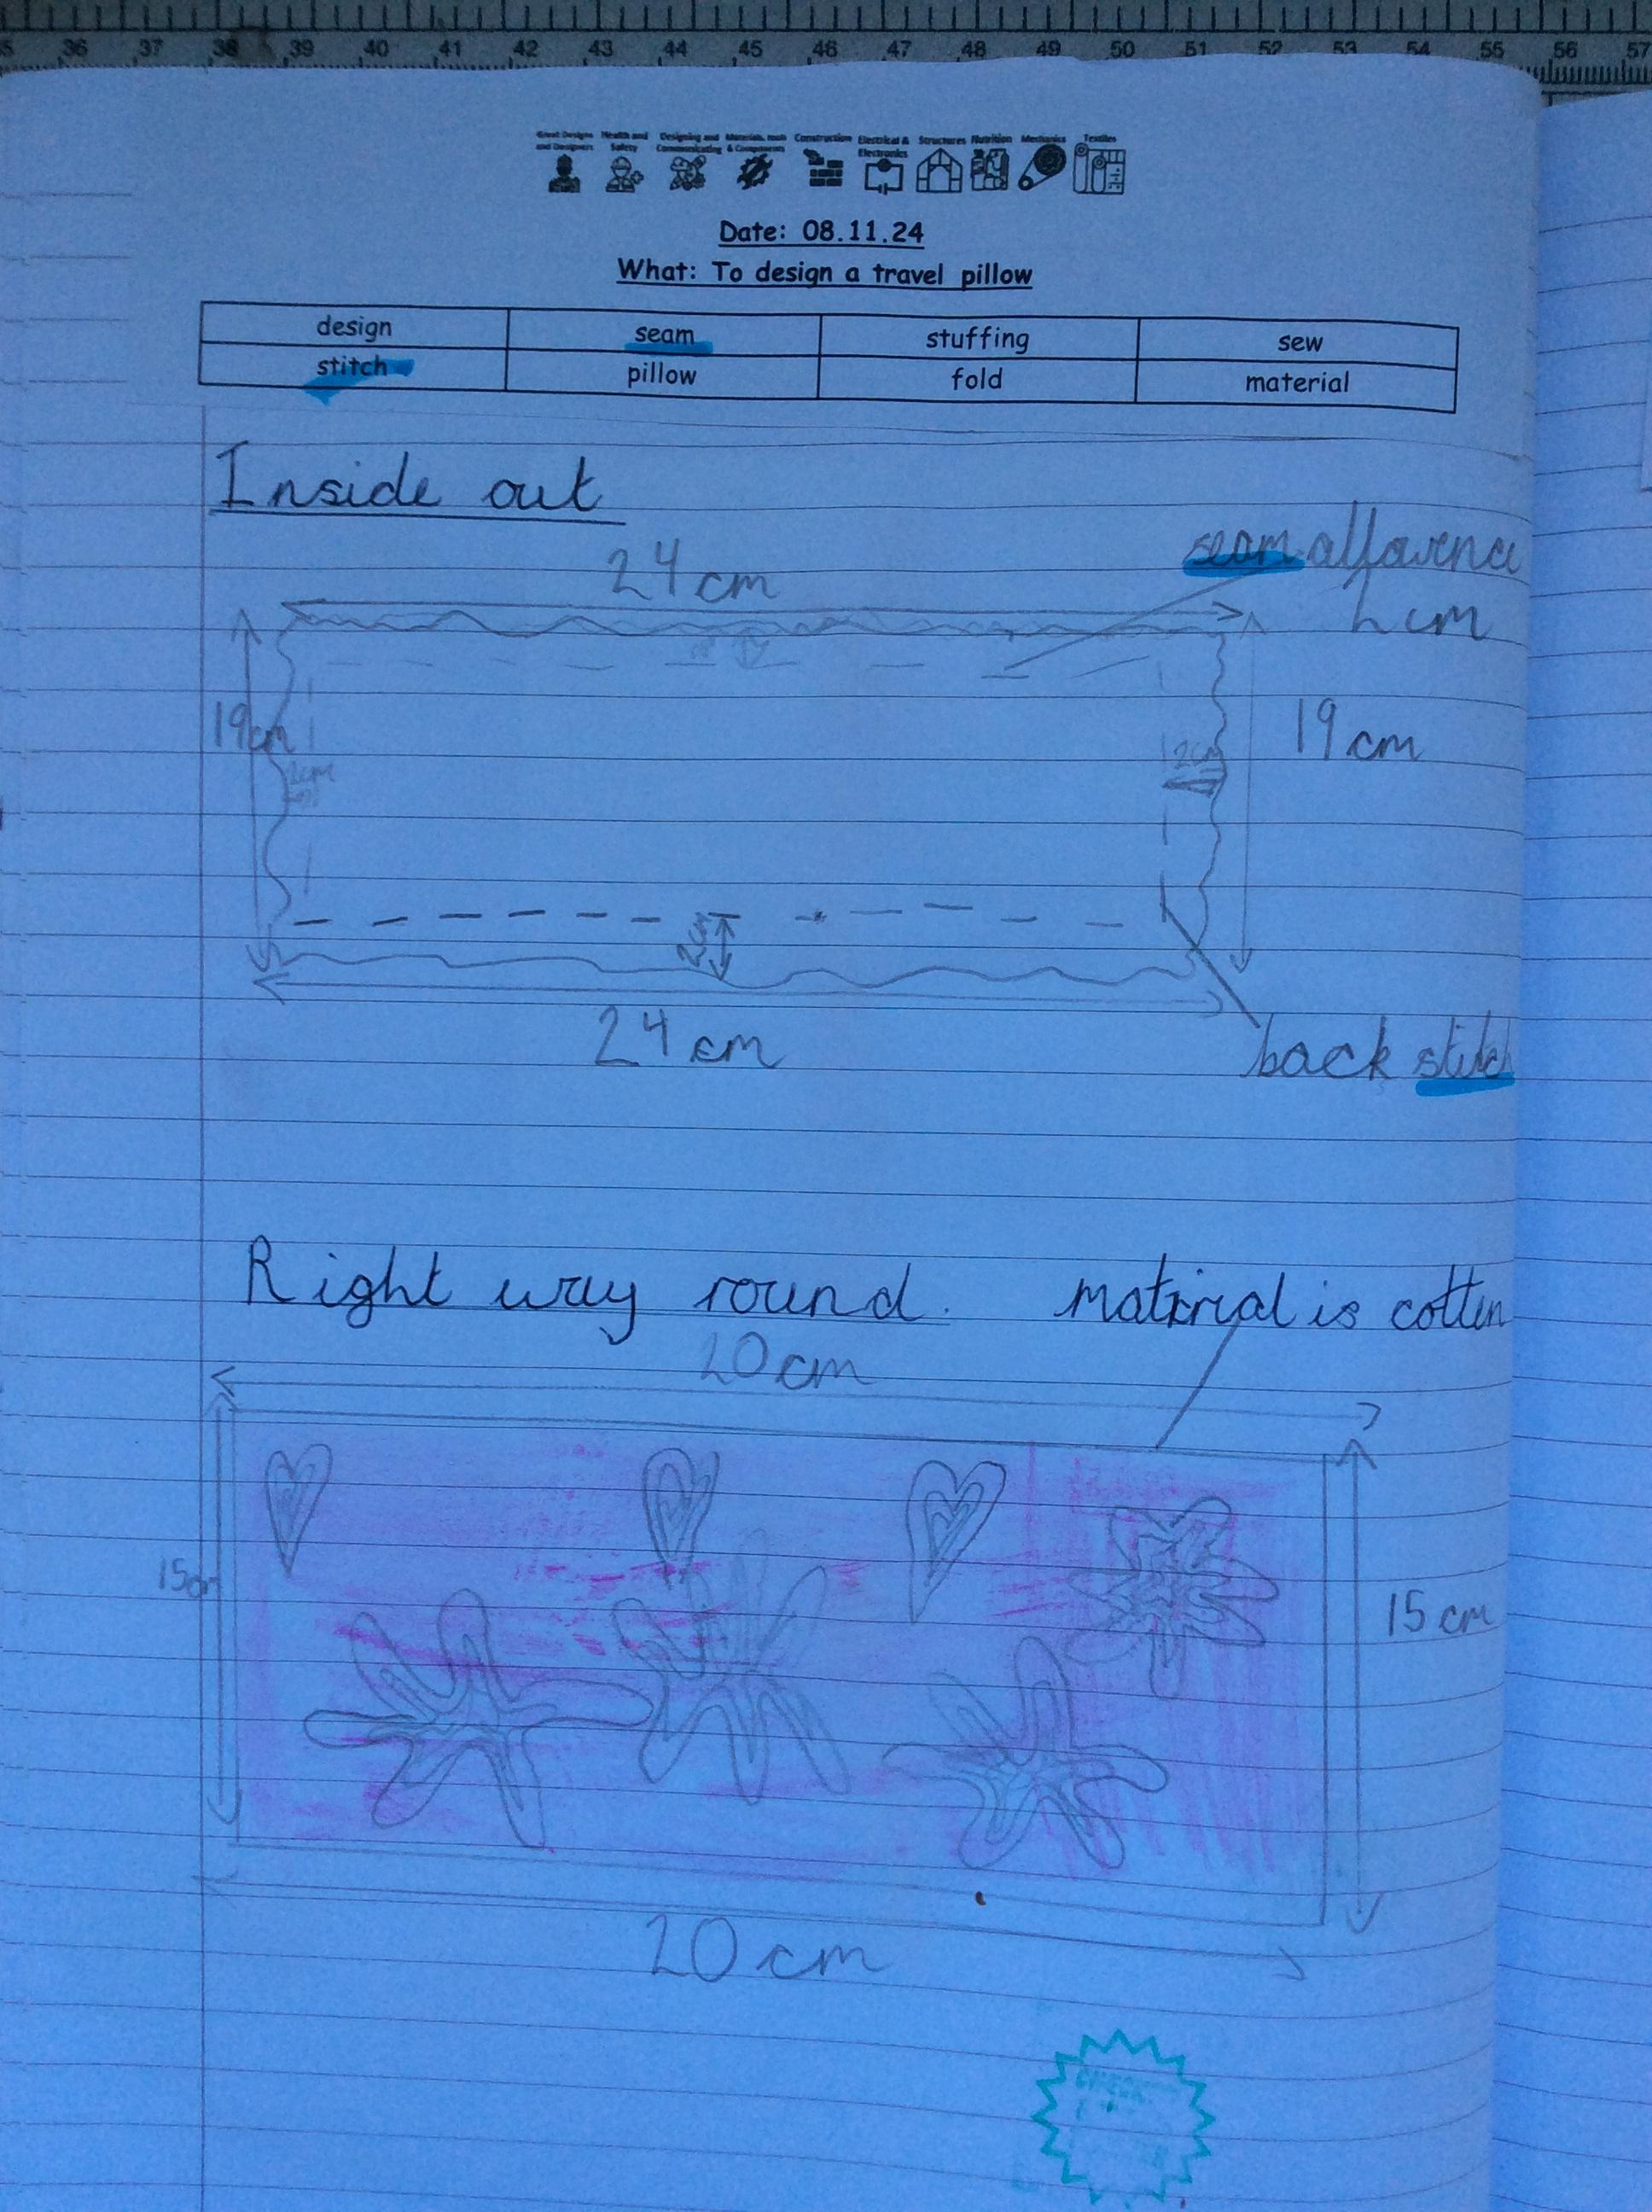 36 37 38 39 40 41 42 43 44 45 46 47 48 49 50 51 52 53 54 55 56 57
Great Designs and Designers
Health and Safety
Designing and Communicating
Materials, tools & Components
Construction
Electrical & Electronics
Structures
Nutrition
Mechanics
Textiles
Date: 08.11.24
What: To design a travel pillow
design seam stuffing sew
stitch pillow fold material
Inside out
seam allowence
24 cm
2 cm
19 cm
19 cm
2cm
2cm
2cm
24 cm
back stitch
Right way round. material is cotten
20 cm
15cm
15 cm
20 cm